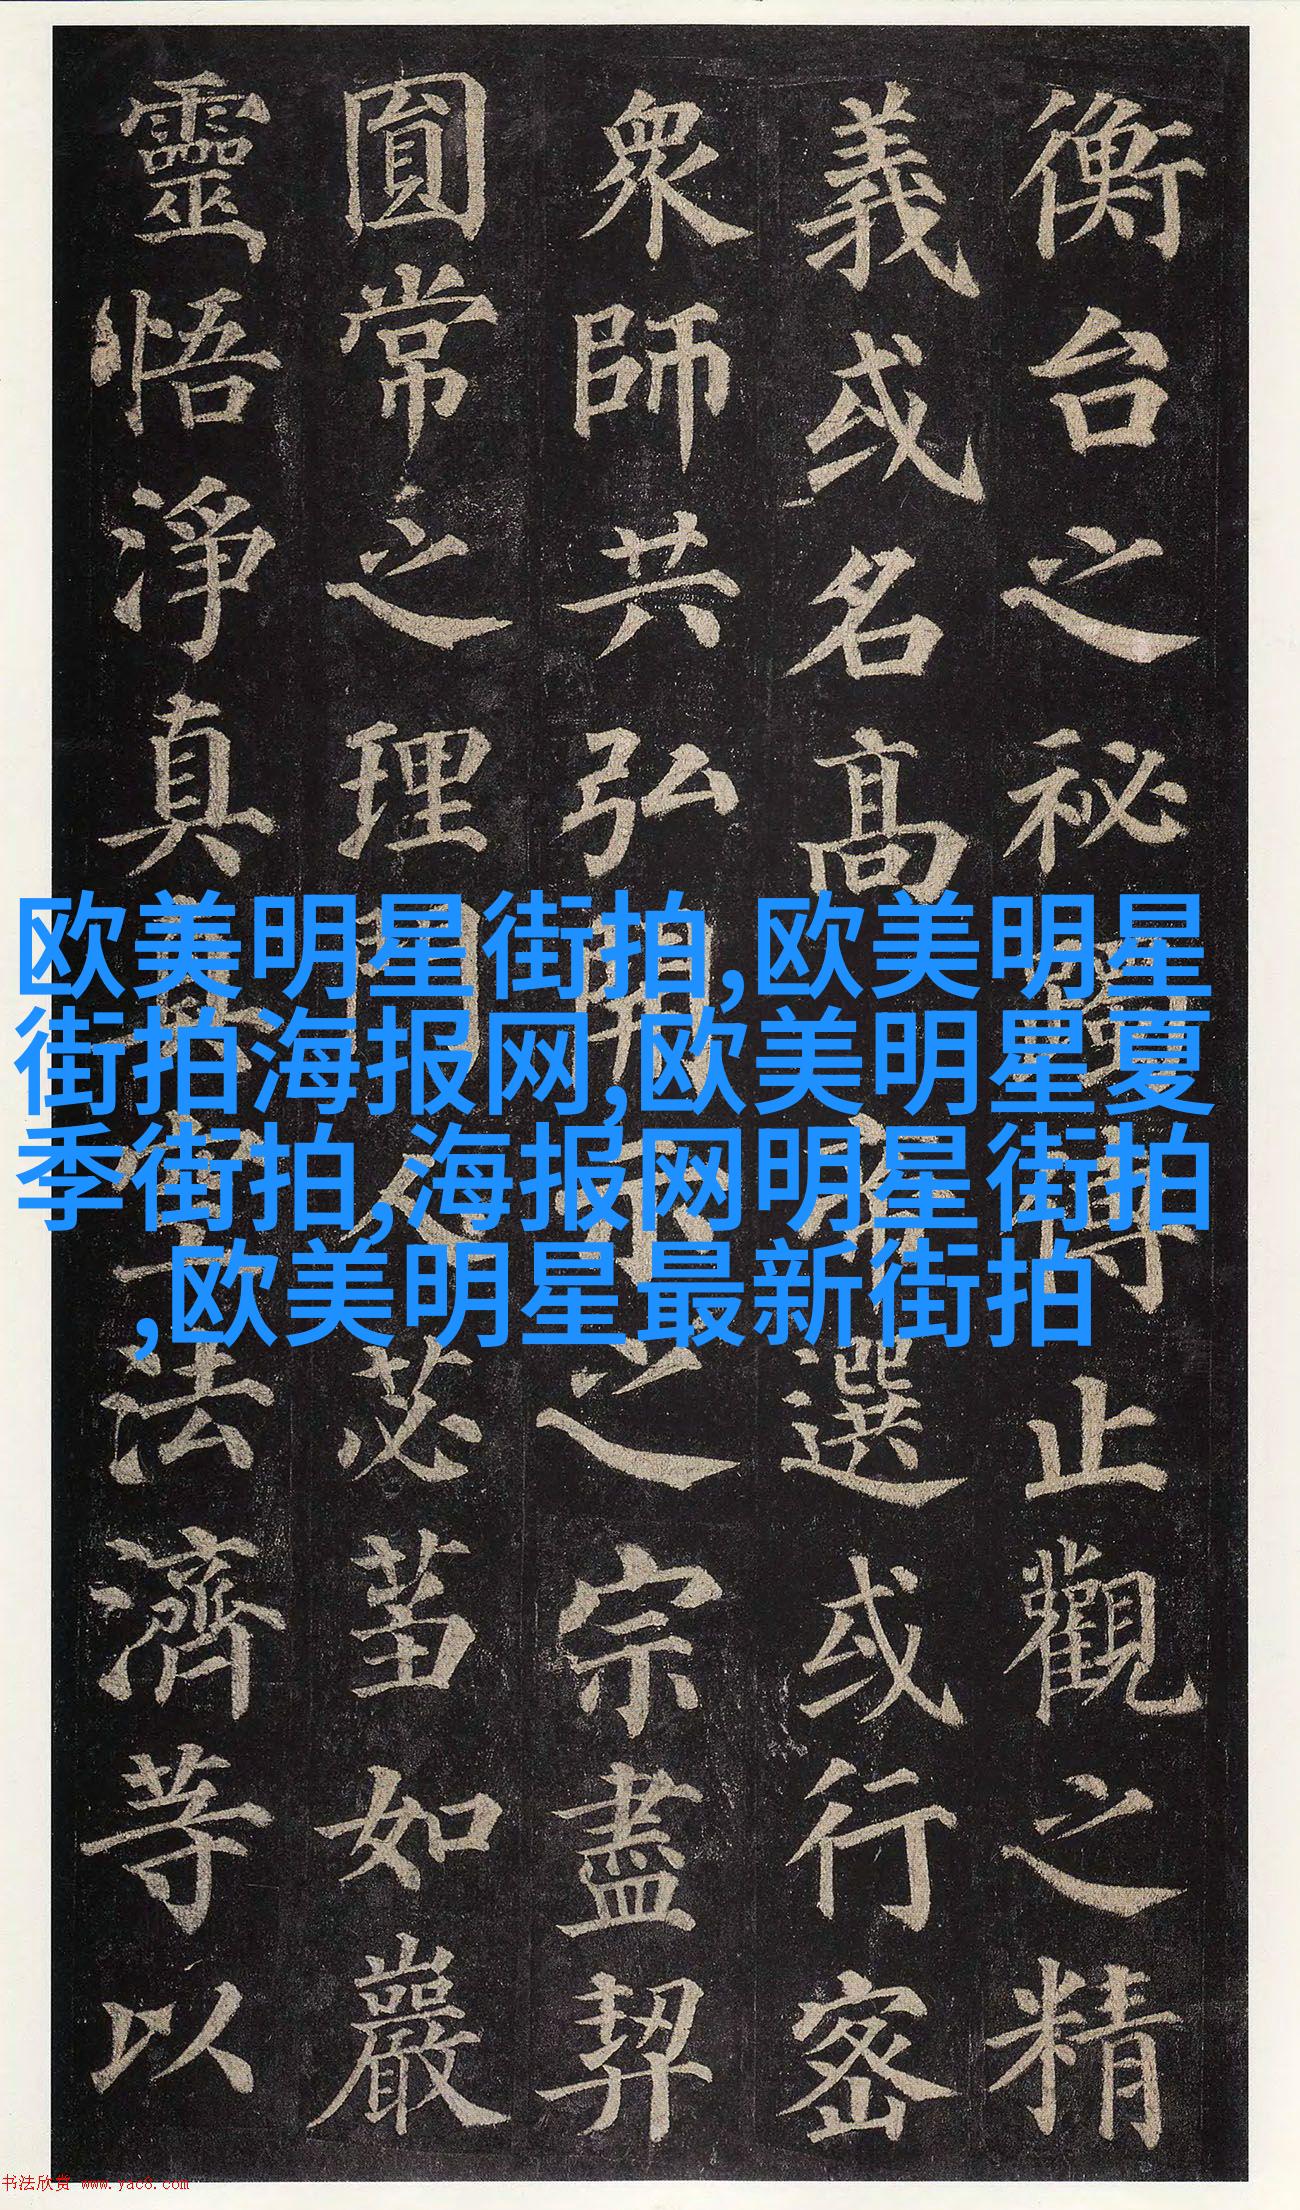 衡台之秘躅傳止觀之精
義或名高帝選或行密
衆師共弘開示之宗盡契
圓常之理門人苾蒭如嚴
靈悟淨真真空法濟等以
欧美明星街拍,欧美明星
街拍海报网,欧美明星夏
季街拍,海报网明星街拍
,欧美明星最新街拍
书法欣赏 www.yac8.com